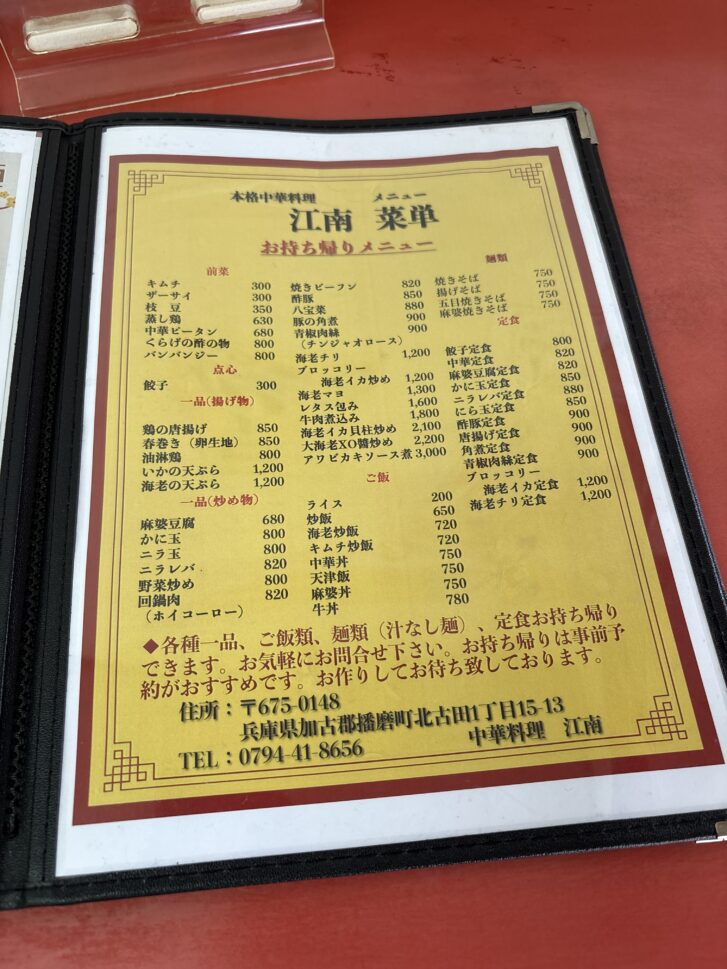 本格中華料理 メニュー
江南 菜単
お持ち帰りメニュー
前菜
キムチ 300
ザーサイ 300
枝豆 350
蒸し鶏 630
中華ピータン 680
くらげの酢の物 800
バンバンジー 800
点心
餃子 300
一品(揚げ物)
鶏の唐揚げ 850
春巻き（卵生地） 850
油淋鶏 800
いかの天ぷら 1,200
海老の天ぷら 1,200
一品(炒め物)
麻婆豆腐 680
かに玉 800
ニラ玉 800
ニラレバ 820
野菜炒め 800
回鍋肉 820
（ホイコーロー）
焼きビーフン 820
酢豚 850
八宝菜 880
豚の角煮 900
青椒肉絲 900
（チンジャオロース）
海老チリ 1,200
ブロッコリー
海老イカ炒め 1,200
海老マヨ 1,300
レタス包み 1,600
牛肉煮込み 1,800
海老イカ貝柱炒め 2,100
大海老XO醬炒め 2,200
アワビカキソース煮 3,000
ご飯
ライス 200
炒飯 650
海老炒飯 720
キムチ炒飯 720
中華丼 750
天津飯 750
麻婆丼 750
牛丼 780
麺類
焼きそば 750
揚げそば 750
五目焼きそば 750
麻婆焼きそば 750
定食
餃子定食 800
中華定食 820
麻婆豆腐定食 820
かに玉定食 850
ニラレバ定食 880
にら玉定食 850
酢豚定食 900
唐揚げ定食 900
角煮定食 900
青椒肉絲定食 900
ブロッコリー
海老イカ定食 1,200
海老チリ定食 1,200
◆各種一品、ご飯類、麺類（汁なし麺）、定食お持ち帰り
できます。お気軽にお問合せ下さい。お持ち帰りは事前予
約がおすすめです。お作りしてお待ち致しております。
住所：〒675-0148
兵庫県加古郡播磨町北古田1丁目15-13
TEL：0794-41-8656 中華料理 江南